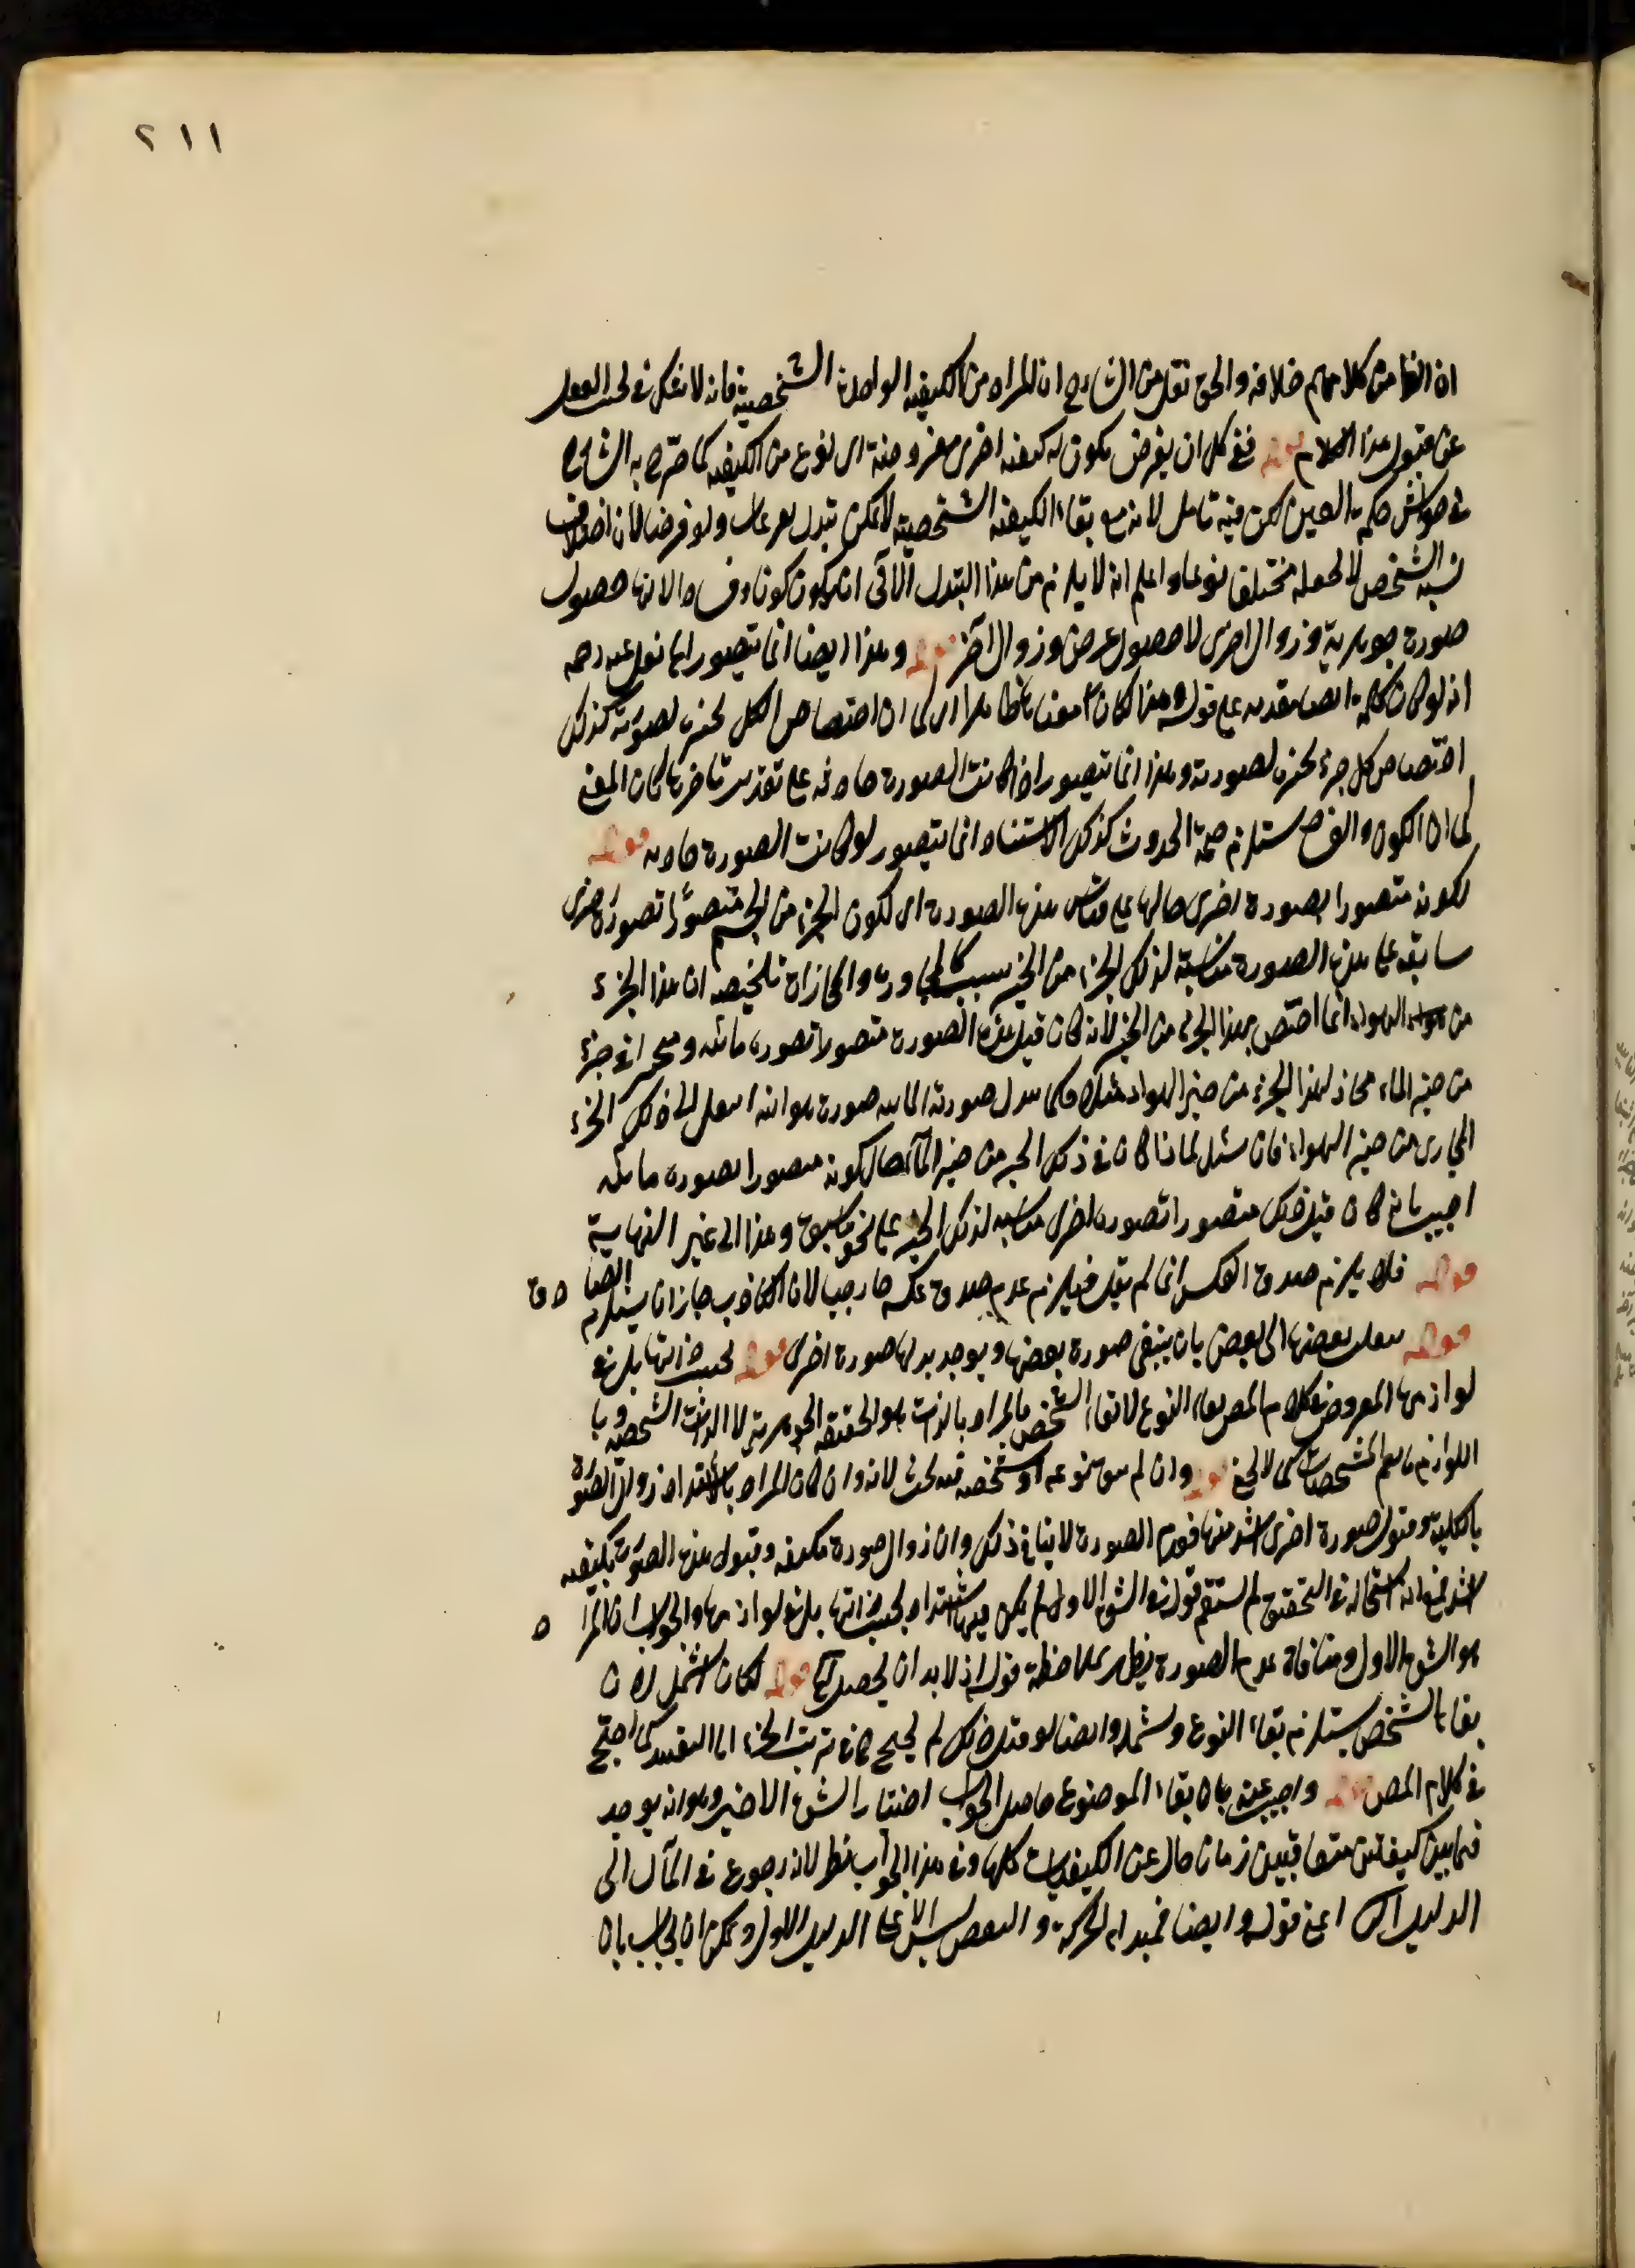 ٢١١
ان الظا من كلامهم خلافه والحق نقل من الشارح ان المراد من الكيفية الواحدة الشخصية فانه لا تفكر في لحب العقل
عن قبول هذا الكلام قوله ففي كل ان يفرض يكون له كيفية اخرى مفروضة اى نوع من الكيفية كما صرح به الشارح
في حواشى حكمة العين لكن فيه تامل لانه مع بقاء الكيفية الشخصية لا يمكن تبدل ولو فرضنا لان اختلاف
نسبة الشخص لا لجعله مختلفا نوعا واعلم انه لا يلزم من هذا التبدل الآنى ان يكون كون وف والا لانها حصول
صورة جوهرية وزوال اخرى لا حصول عرض وزوال آخر قوله وهذا ايضا انما يتصور نقل عنه رحمه
انه لو كان كلمة ايضا مقدمة على قوله هذا لكان معناها ظاهرا اى كما ان اختصاص الكل بحيزه لصورته كذلك
اختصاص كل جزء بحيزه لصورته وهذا انما يتصور اذا كانت الصورة حادثه على تقدير تاخرها كان المعنى
كما ان الكون والف يستلزم صحة الحدوث كذلك الاستناد انما يتصور لو كانت الصورة حادثه قوله
لكونه متصورا بصورة اخرى حالها على قياس هذه الصورة اى لكون الجزء من الجسم متصورا بصورة اخرى
سابقه على هذه الصورة مناسبة لذلك الجزء من الحيز بسبب كالمجاورة والمحازاة تلخيصه ان هذا الجزء
من الهواء انما اختص بهذا الجزء من الحيز لانه كان قبل هذه الصورة متصورا بصورة مائية ومتحيزا في جزء
من حيز الماء محاذ لهذا الجزء من حيز الهواء مثلا فلما تبدل صورته المائية صورة هوائية انتقل الى ذلك الجزء
المحاذى من حيز الهواء فان سئل لماذا كان في ذلك الحيز من حيز الماء حال كونه متصورا بصورة مائية
اجيب بانه كان قبل ذلك متصورا بصورة اخرى مناسبة لذلك الحيز على نحو ما سبق وهذا الى غير النهاية
قوله فلا يلزم صدق العكس انما لم يقل فيلزم عدم صدق عكسه لان الكاذب جاز ان يستلزم الصادق
قوله بعضها الى بعض بان ينبغى صورة بعضها ويوجد بدلها صورة اخرى قوله بحسب ذاتها بل في
لوازمها المعروض كلام المص بقاء النوع لا بقاء الشخص فالمراد بالذات هو الحقيقة الجوهرية لا الذات الشخصية وبا
اللوازم ما يعم المشخصات كما لا يخفى قوله وان لم يبق نوعه او شخصه فيه بحث لانه وان كان المراد بالاشتداد زوال الصورة
بالكلية وقبول صورة اخرى اشد منها فعدم الصورة لا ينافى ذلك وان زوال صورة بكيفية وقبول هذه الصورة بكيفية
اشد في التحقيق لم يستقم قوله في الشق الاول لم يكن فيها اشتداد بحسب ذاتها بل في لوازمها والجواب ان المراد
هو الشق الاول ومنافاة عدم الصورة يظهر بملاحظة قوله اذ لابد ان يحصل قوله لكان اشمل لان
بقاء الشخص يستلزم بقاء النوع ويشمله وايضا لو قيل ذلك لم يحتج في ترتب الجزاء الى التقييد كما احتيج
في كلام المص قوله واجيب عنه بان بقاء الموضوع حاصل الجواب اختيار الشق الاخير وهو انه يوجد
فيما بين كيفيتين متعاقبتين زمان خال عن الكيفيات كلها وفي هذا الجواب نظر لانه رجوع في المآل الى
الدليل اعنى قوله وايضا فمبدء الحركة و النقض ليس الا على الدليل الاول ويمكن ان يجاب بان